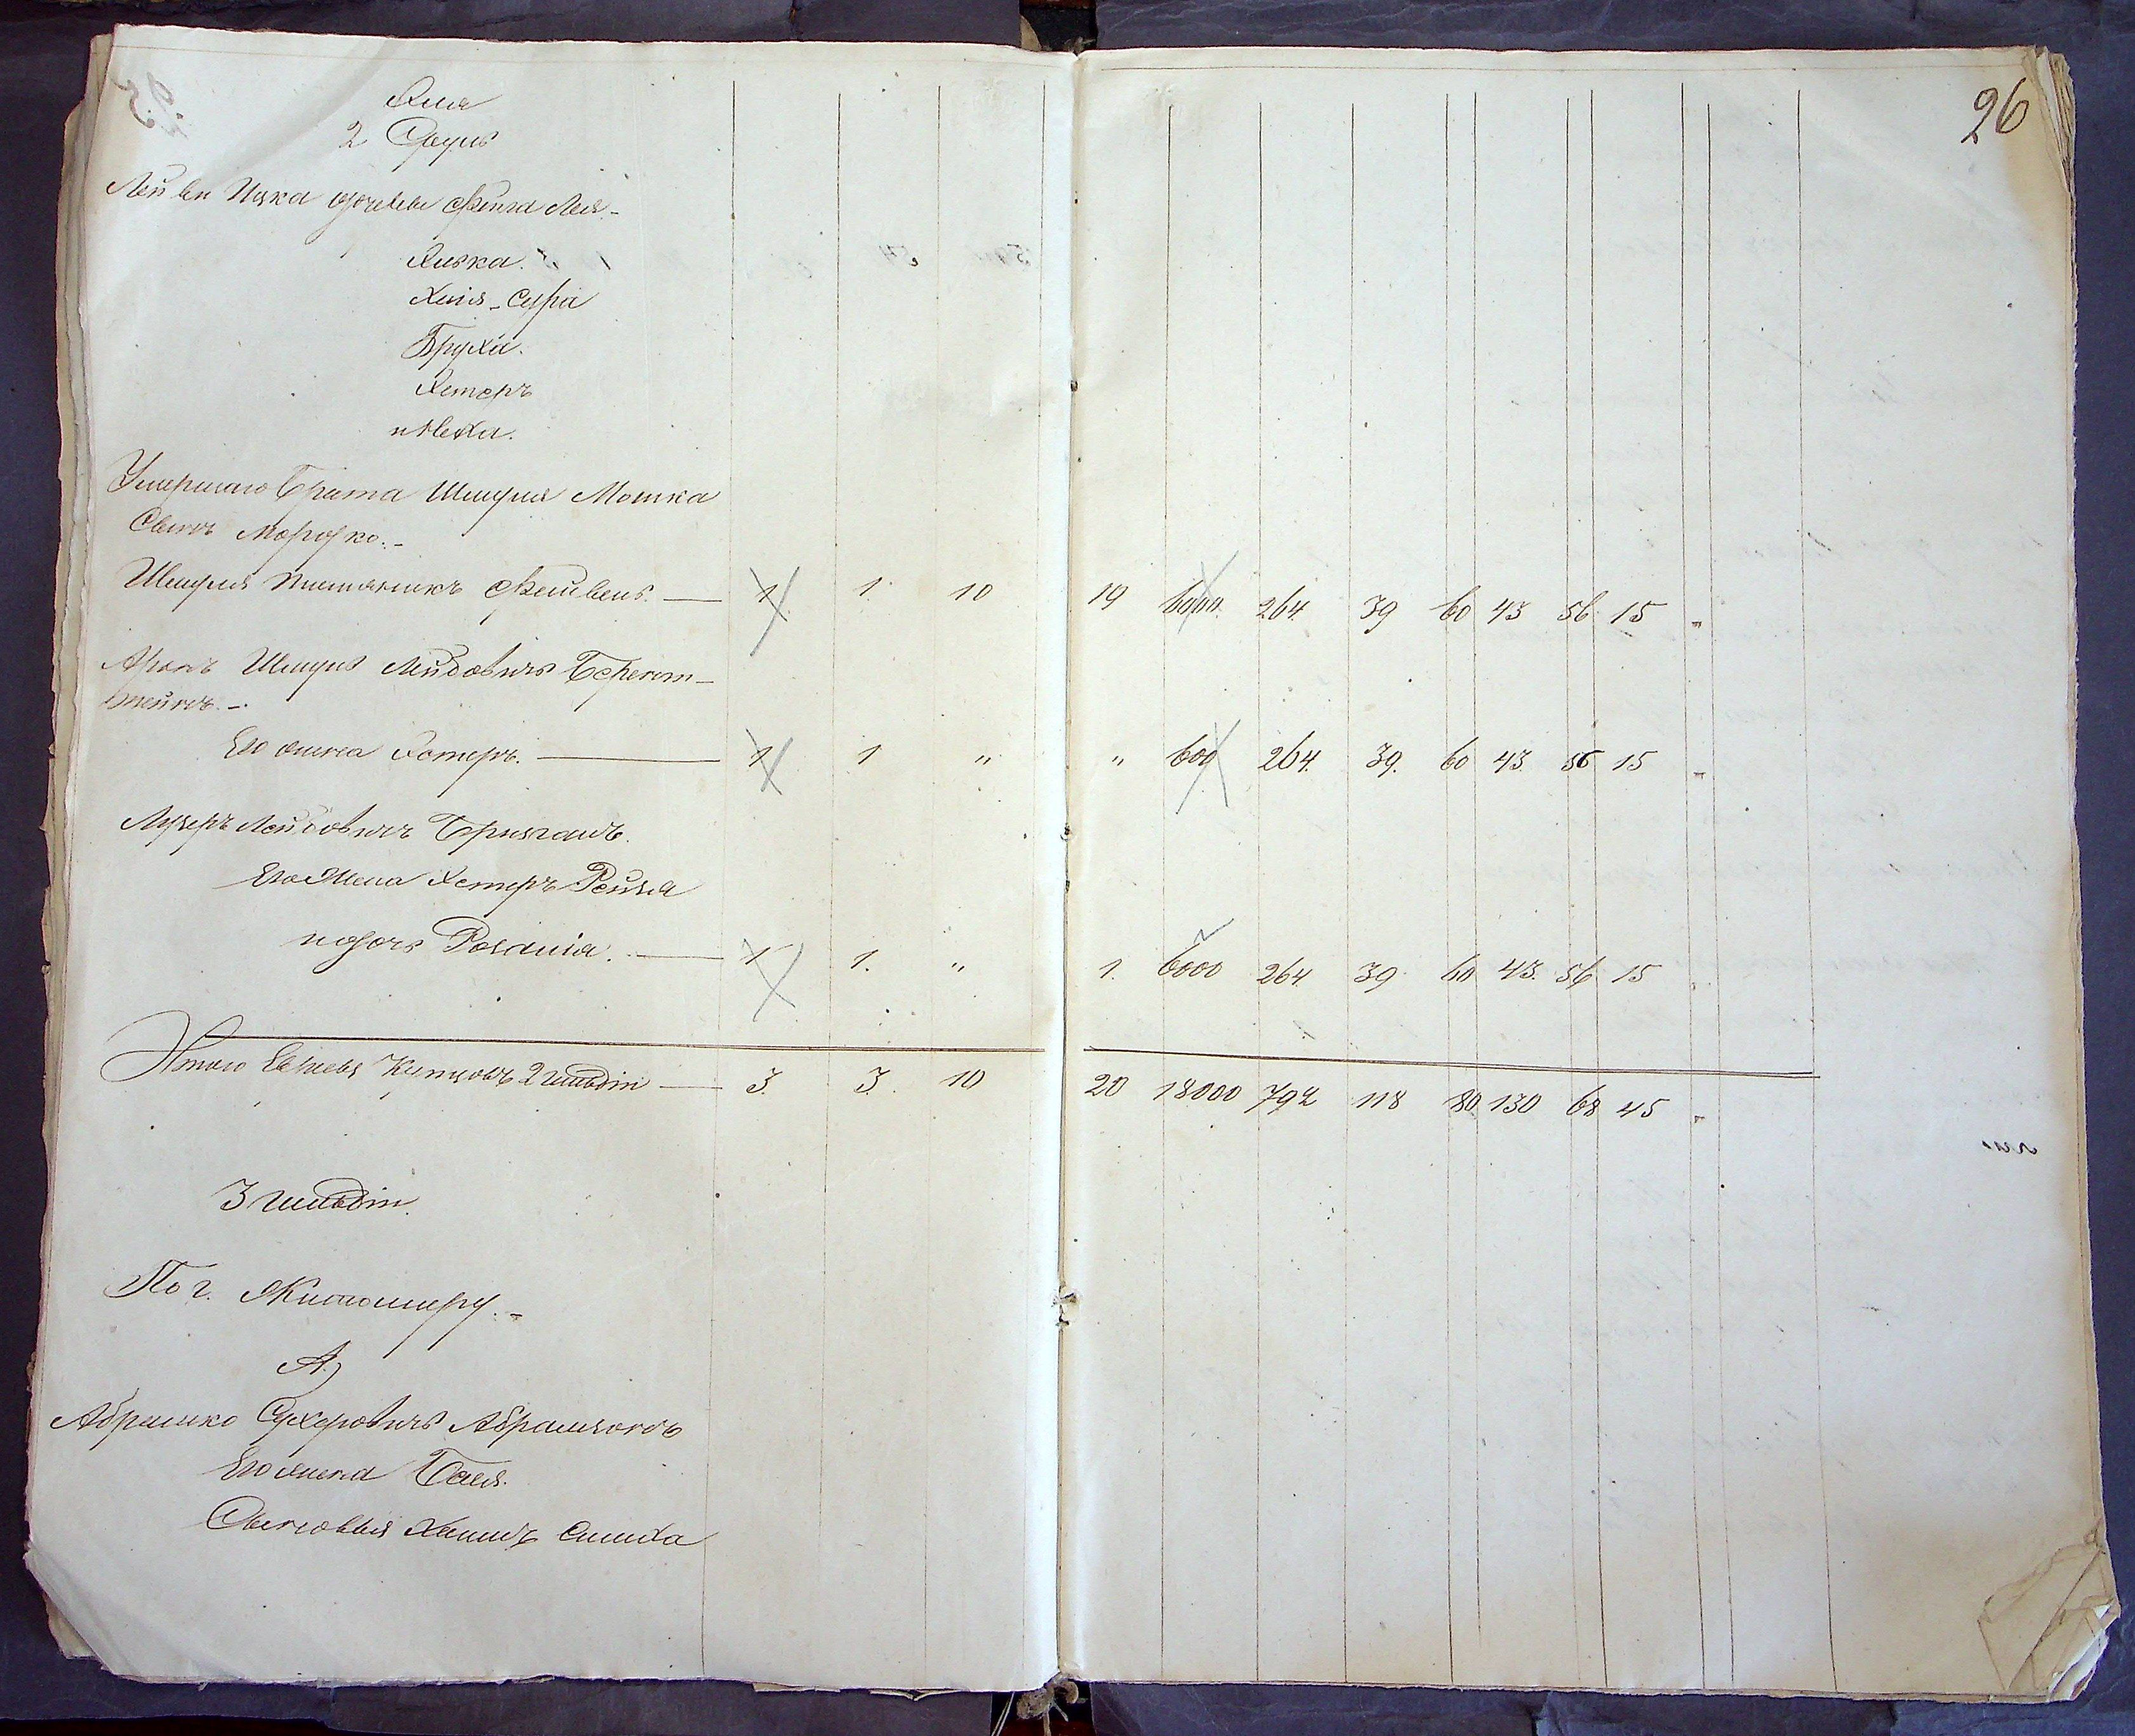 26
2
Лейви Ицка дочери Фейга Лея. –
Ривка.
Хаія – Сура
Бруха.
Хестеръ
и Неха.
Умершаго брата Шмуля Мошка
Сынъ Мордко. –
Шмуля — 1 1 10 19 6000 264 39 60 43 56 15 „
Аронъ Шмуль Лейбовичъ Беренш–
тейнъ. –
Его жена Естеръ. — 1 1 „ „ 600 264 39 60 43 56 15 „
Лузеръ Лейбовичъ
Его жена Хестеръ Рейзя
и дочь Розалія. — 1 1. „ 1. 6000 264 39 60 43 56 15 „
Итого Евреевъ Купцовъ 2 гильдіи — 3. 3. 10 20 18000 792 118 80 130 68 45 „
3 гильдіи.
По г. Житомиру. –
А)
Абрамко Сухеровичъ Абрамзонъ
Его жена Бася.
Сыновья Хаимъ Симха